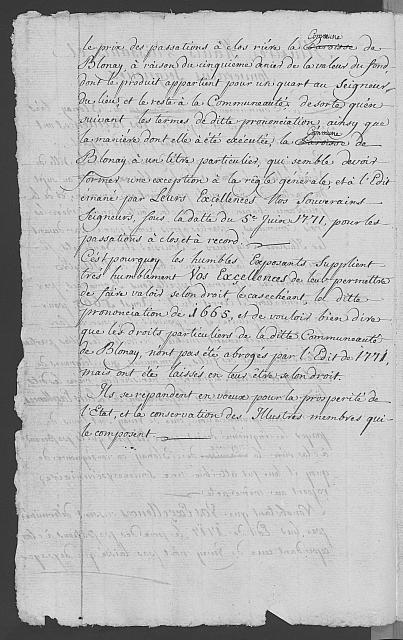 Commune
le prix des passations à clos rière la Paroisse de
Blonay à raison du cinquième denier de la valeur du fond
dont le produit appartient pour un quart au Seigneur
du lieu, et le reste à la Communauté, desorte qu'en
suivant les termes de ditte prononciation, ainsy que
la manière dont elle a été exécutée, la Paroisse de
Commune
Blonay a un titre particulier, qui semble devoir
former une exception à la règle générale, et à l'Edit
émané par Leurs Excellences Nos Souverains
Seigneurs, sous la datte du 5e Juin 1771, pour les
passations à clos et à record.
C'est pourquoy les humbles Exposants Supplient
très humblement Vos Excellences de leur permettre
de faire valoir selon droit, le cas echéant, la ditte
prononciation de 1665, et de vouloir bien dire
que les droits particuliers de la ditte Communauté
de Blonay, n'ont pas été abrogés par l'Edit de 1771,
mais ont été laissés en leur être selon droit.
Ils se répandent en voeux pour la prosperité de
l'Etat, et la conservation des Illustres membres qui
le composent